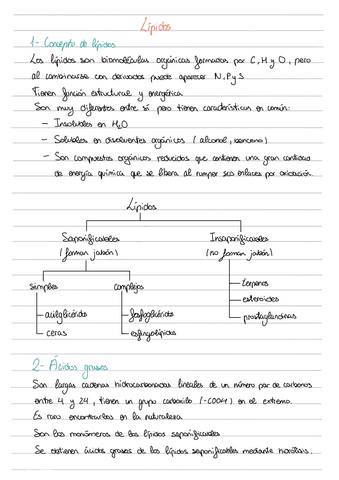 Lípidos
1- Concepto de lípidos
Los lípidos son biomoléculas orgánicas formadas por C, H y O, pero
al combinarse con derivados puede aparecer N, P y S
Tienen función estructural y energética
Son muy diferentes entre sí pero tienen características en común:
- Insolubles en H₂O
- Solubles en disolventes orgánicos (alcohol, benceno)
- Son compuestos orgánicos reducidos que contienen una gran cantidad
de energía química que se libera al romper sus enlaces por oxidación.
Lípidos
Saponificables
(forman jabón)
Insaponificables
(no forman jabón)
simples
complejos
- acilglicéridos
- ceras
- fosfoglicéridos
- esfingolípidos
- terpenos
- esteroides
- prostaglandinas
2- Ácidos grasos
Son largas cadenas hidrocarbonadas lineales de un número par de carbonos
entre 4 y 24, tienen un grupo carboxilo (-COOH) en el extremo.
Es raro encontrarlos en la naturaleza
Son los monómeros de los lípidos saponificables
Se obtienen ácidos grasos de los lípidos saponificables mediante hidrólisis.